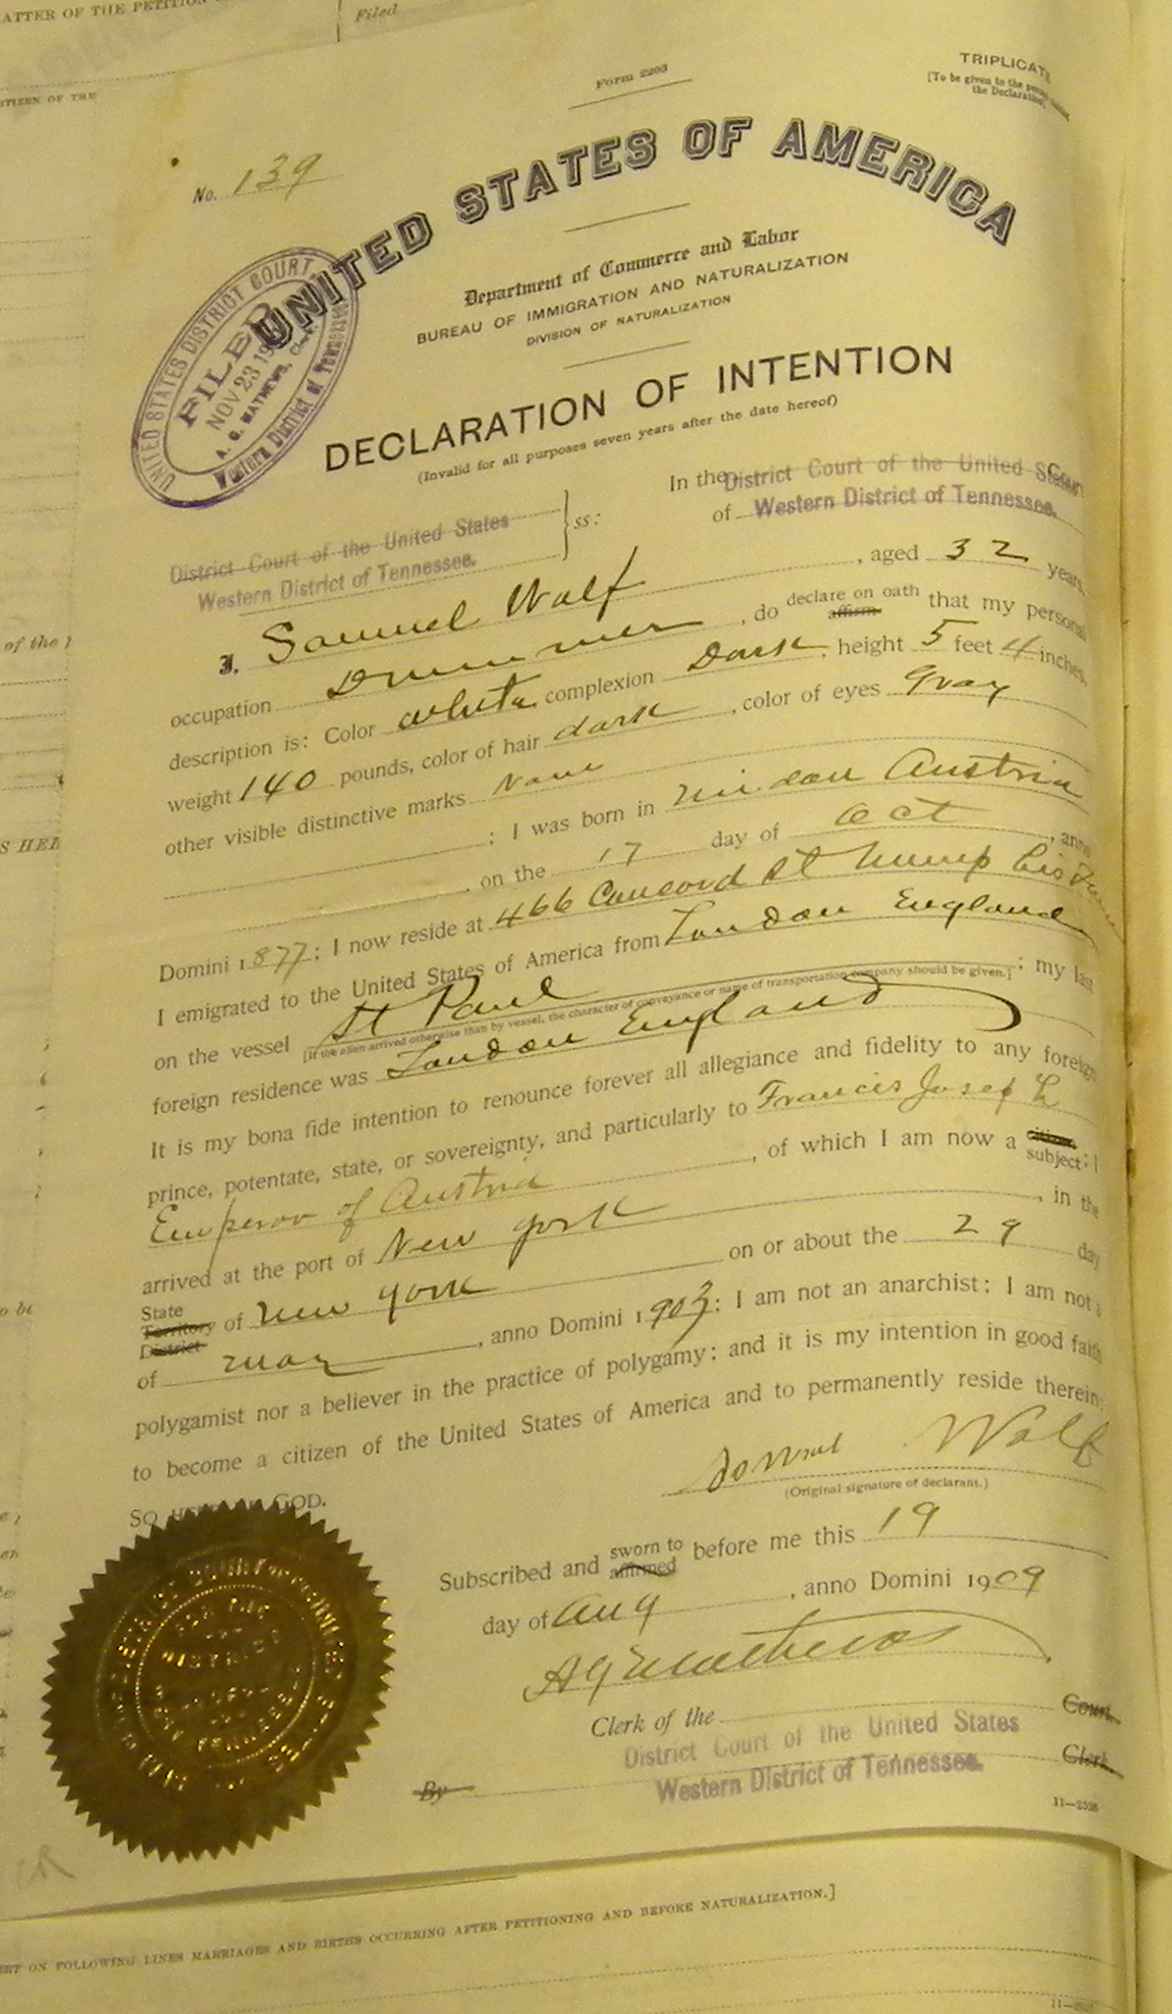 ATTER OF THE PETITION
Filed
ITIZEN OF THE
Form 2203
TRIPLICATE
[To be given to the
the Declaration
No. 139
UNITED STATES OF AMERICA
Department of Commerce and Labor
BUREAU OF IMMIGRATION AND NATURALIZATION
DIVISION OF NATURALIZATION
UNITED STATES DISTRICT COURT
FILED
NOV 23 19
A. G. MATHEWS, Clerk.
Western District of Tennessee
DECLARATION OF INTENTION
(Invalid for all purposes seven years after the date hereof)
In the District Court of the United States Court
of Western District of Tennessee.
District Court of the United States
Western District of Tennessee.
ss:
I, Samuel Wolf, aged 32 years,
occupation Drummer, do declare on oath affirm that my personal
description is: Color White, complexion Dark, height 5 feet 4 inches,
weight 140 pounds, color of hair dark, color of eyes gray
other visible distinctive marks None
: I was born in Austria
, on the 17 day of Oct, anno
Domini 1877; I now reside at 466 Concord St
I emigrated to the United States of America from London England
on the vessel St Paul; my last
[If the alien arrived otherwise than by vessel, the character of conveyance or name of transportation company should be given.]
foreign residence was London England
It is my bona fide intention to renounce forever all allegiance and fidelity to any foreign
prince, potentate, state, or sovereignty, and particularly to Francis Joseph
Emperor of Austria, of which I am now a citizen subject; I
arrived at the port of New York, in the
State Territory District of New York on or about the 29 day
of May, anno Domini 1903; I am not an anarchist; I am not a
polygamist nor a believer in the practice of polygamy; and it is my intention in good faith
to become a citizen of the United States of America and to permanently reside therein:
SO HELP ME GOD.
Wolf
(Original signature of declarant.)
Subscribed and sworn to affirmed before me this 19
day of Aug, anno Domini 1909
A G Mathews
Clerk of the Court.
District Court of the United States
Western District of Tennessee.
By Clerk.
11—2326
ERT ON FOLLOWING LINES MARRIAGES AND BIRTHS OCCURRING AFTER PETITIONING AND BEFORE NATURALIZATION.]